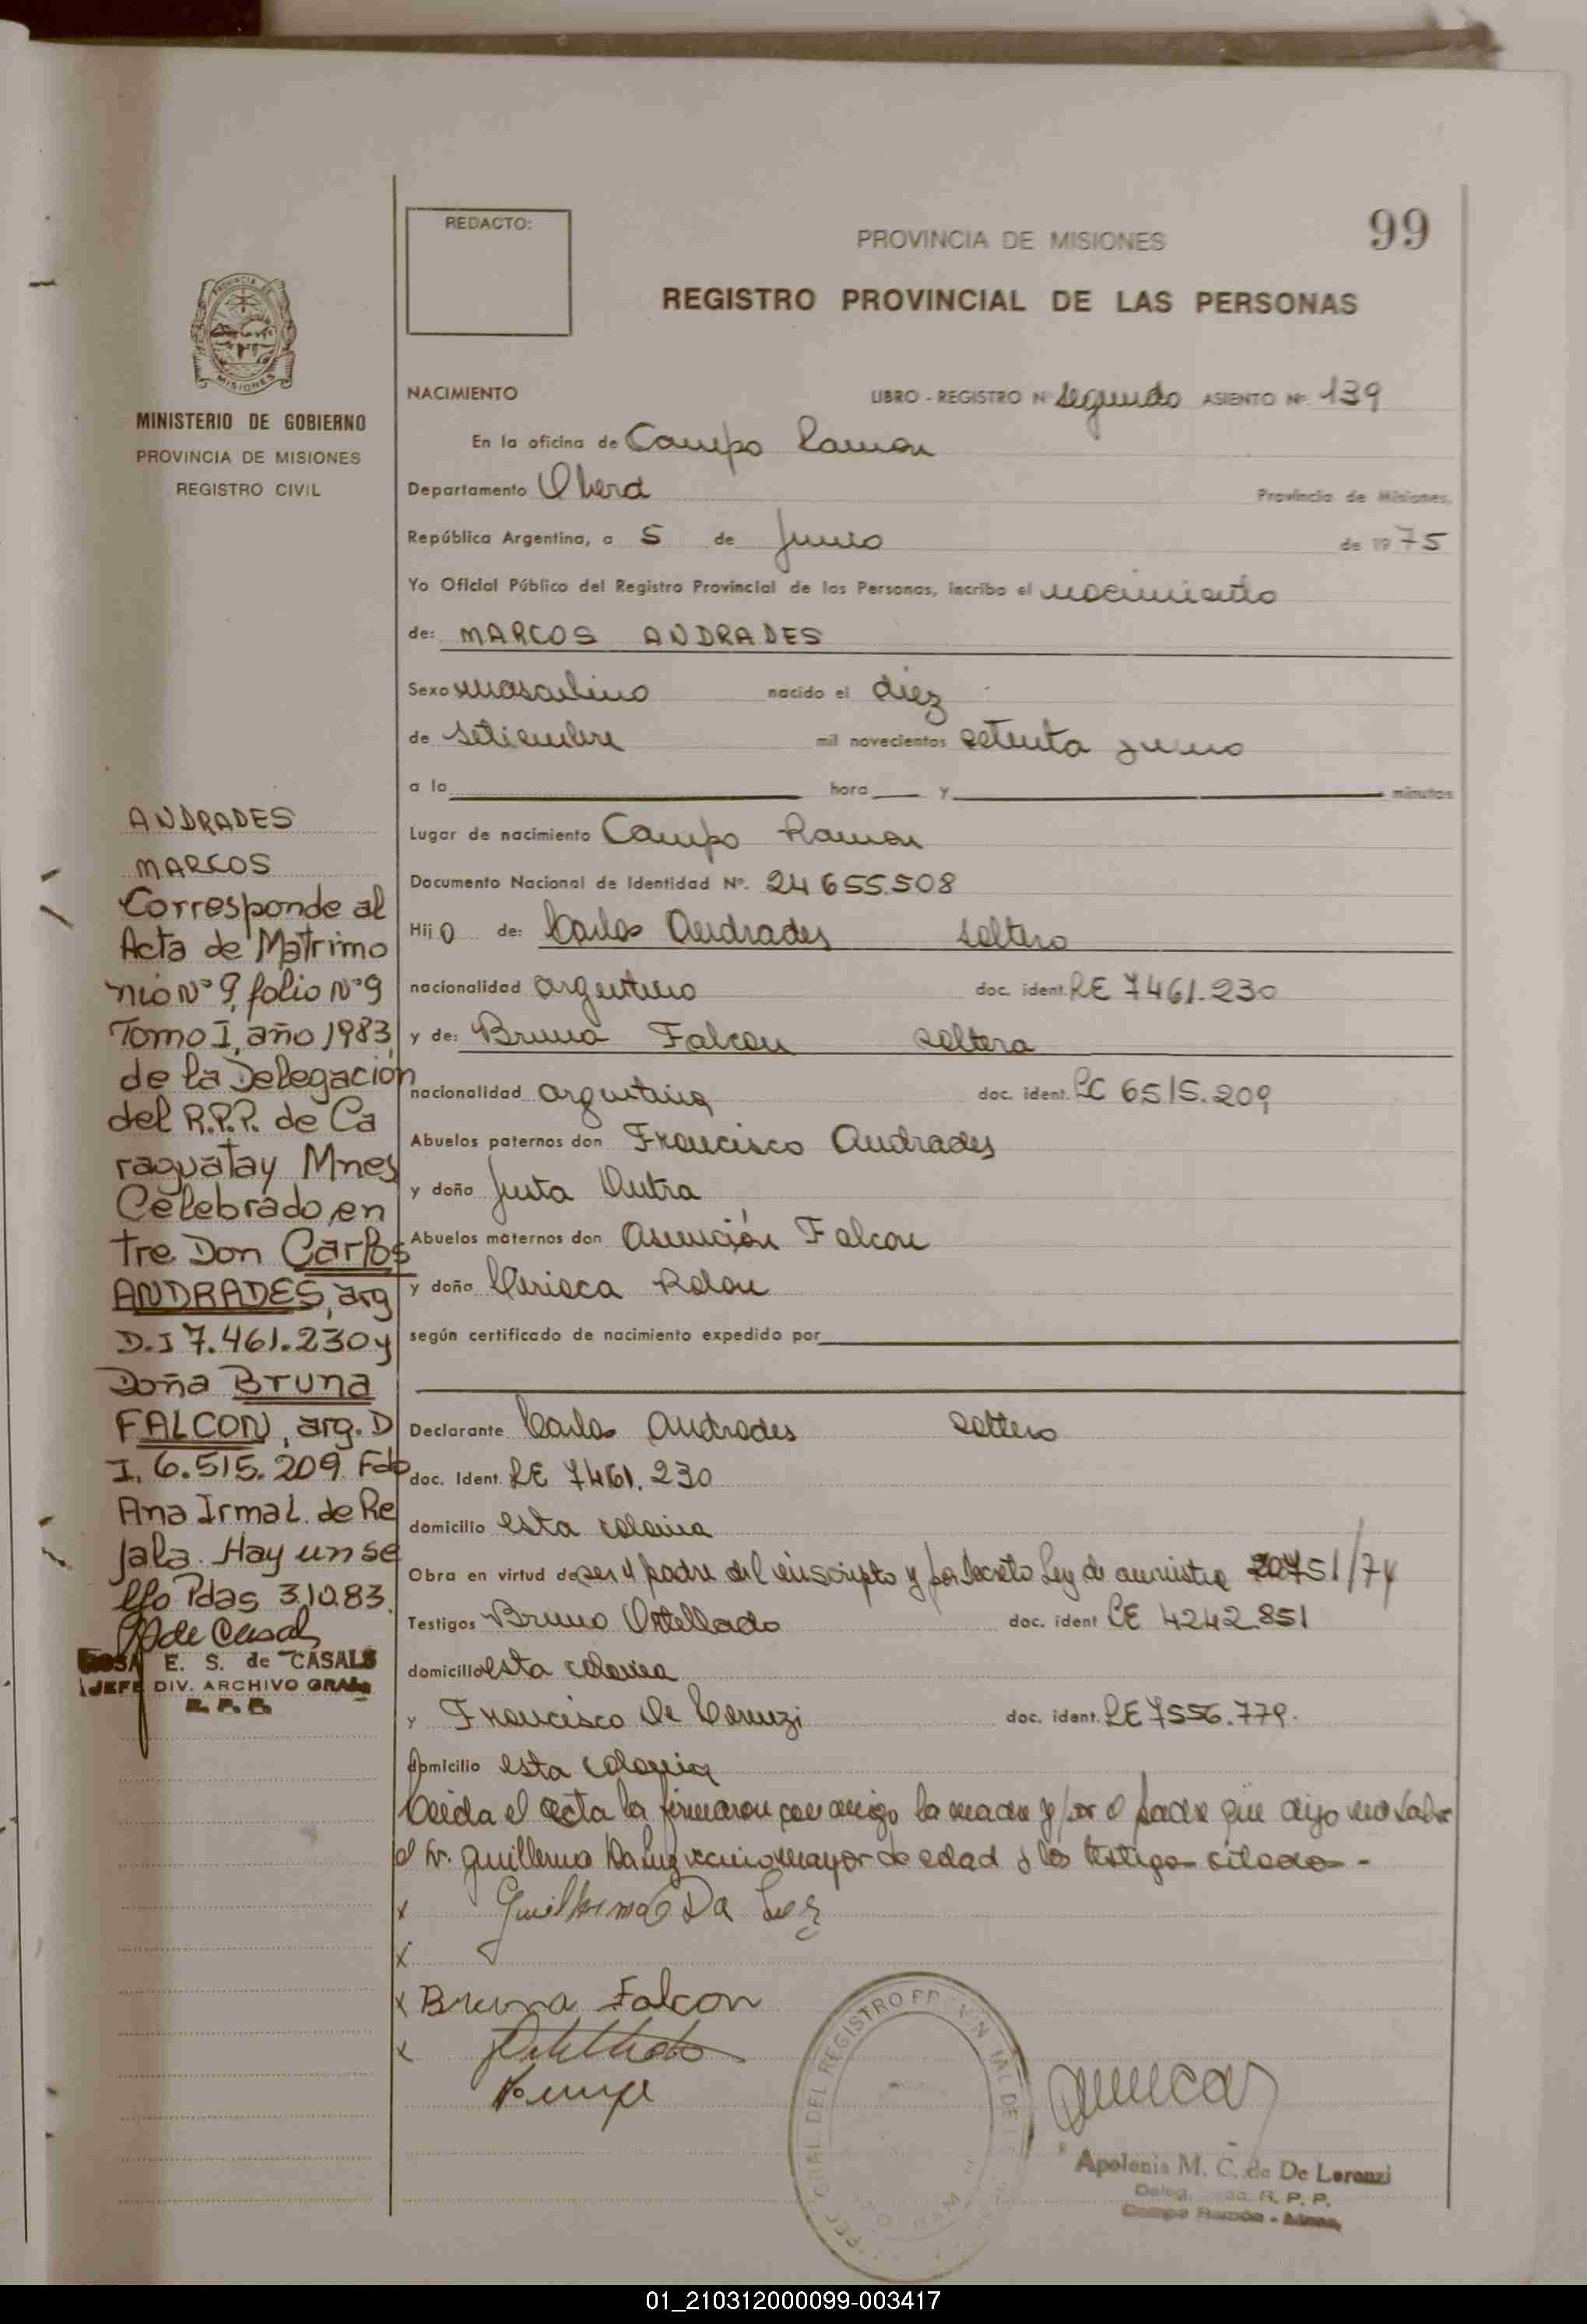 REDACTO:
PROVINCIA DE MISIONES
99
REGISTRO PROVINCIAL DE LAS PERSONAS
MISIONES
MINISTERIO DE GOBIERNO
PROVINCIA DE MISIONES
REGISTRO CIVIL
NACIMIENTO LIBRO - REGISTRO Nº segundo ASIENTO Nº 139
En la oficina de Campo Ramon
Departamento Oberá Provincia de Misiones,
República Argentina, a 5 de Junio de 1975
Yo Oficial Público del Registro Provincial de las Personas, incribo el nacimiento
de: MARCOS ANDRADES
Sexo masculino nacido el diez
de setiembre mil novecientos setenta y uno
a la hora y minutos
Lugar de nacimiento Campo Ramon
Documento Nacional de Identidad Nº. 24 655.508
Hijo de: Carlos Andrades soltero
nacionalidad argentino doc. ident. LE 7461.230
y de: Bruna Falcon soltera
nacionalidad argentina doc. ident. LC 6515.209
Abuelos paternos don Francisco Andrades
y doña Justa Dutra
Abuelos maternos don Asunción Falcon
y doña Ciriaca Rolon
según certificado de nacimiento expedido por
Declarante Carlos Andrades soltero
doc. Ident. LE 7461.230
domicilio esta colonia
Obra en virtud de ser el padre del inscripto y por Decreto Ley de amnistia 20751/74
Testigos Bruno Ortellado doc. ident CE 4242.851
domicilio esta colonia
y Francisco De Lorenzi doc. ident. LE 7556.779.
domicilio esta colonia
Leida el acta la firmaron con migo la madre y por el padre que dijo no saber
el Sr. Guillermo Da Luz vecino mayor de edad y los testigos citados -
x Guilherme Da Luz
x
x Bruna Falcon
x
ANDRADES
MARCOS
Corresponde al
Acta de Matrimo
nio Nº 9, folio Nº 9
Tomo I, año 1983,
de la Delegación
del R.P.P. de Ca
raguatay Mnes
Celebrado en
tre Don Carlos
ANDRADES, arg
D.I 7.461.230 y
Doña Bruna
FALCON, arg. D
I. 6.515.209 Fdo
Ana Irma L. de Re
jala. Hay un se
llo Pdas 3.10.83.
de Casals
ROSA E. S. de CASALS
JEFE DIV. ARCHIVO GRAL.
R. P. P.
Apolonia M. C. de De Lorenzi
R. P. P.
Campo Ramón - Mnes.
01_210312000099-003417